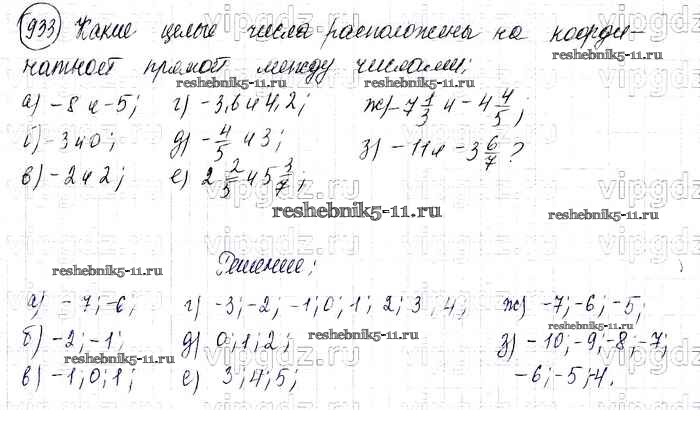 933 Какие целые числа расположены на коорди-
натной прямой между числами:
reshebnik5-11.ru reshebnik5-11.ru
а) -8 и -5; г) -3,6 и 4,2; ж) -7 1/3 и -4 4/5;
б) -3 и 0; д) -4/5 и 3; з) -11 и -3 6/7?
в) -2 и 2; е) 2 2/5 и 5 3/7;
reshebnik5-11.ru reshebnik5-11.ru
Решение:
reshebnik5-11.ru reshebnik5-11.ru
а) -7; -6; г) -3; -2; -1; 0; 1; 2; 3; 4; ж) -7; -6; -5;
б) -2; -1; д) 0; 1; 2; з) -10; -9; -8; -7;
reshebnik5-11.ru reshebnik5-11.ru reshebnik5-11.ru
в) -1; 0; 1; е) 3; 4; 5; -6; -5; -4.
vipgdz.ru